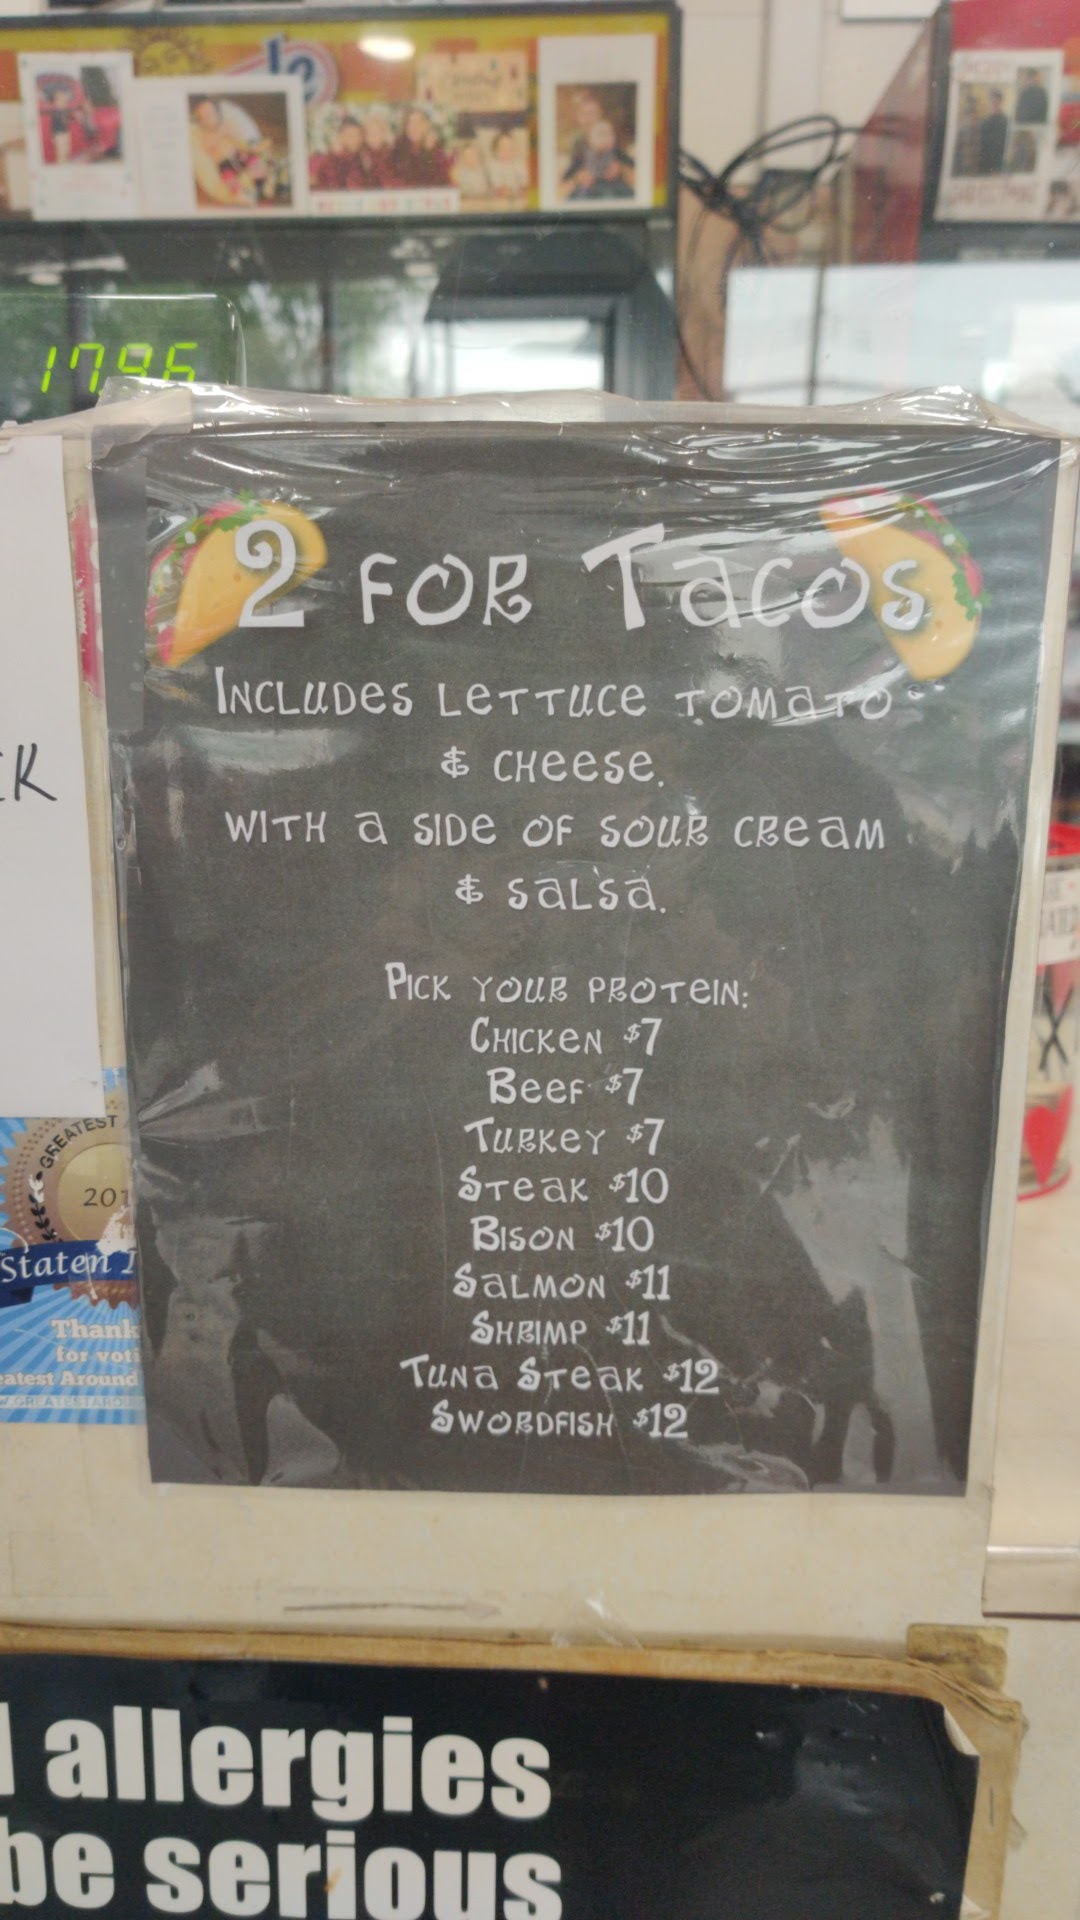 1796
2 for Tacos
Includes lettuce tomato
& cheese.
with a side of sour cream
& salsa.
Pick your protein:
Chicken $7
Beef $7
Turkey $7
Steak $10
Bison $10
Salmon $11
Shrimp $11
Tuna Steak $12
Swordfish $12
K
GREATEST
201
Staten
Thank
for voti
eatest Around
allergies
be serious